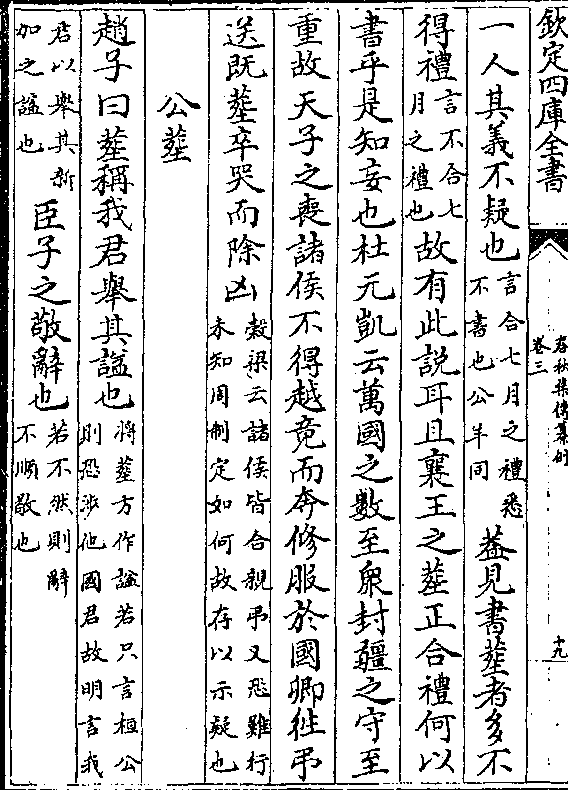 欽定四庫全書
春秋集傳纂例
卷三
十九
一人其義不疑也言合七月之禮悉
不書也公羊同葢見書葬者多不
得禮言不合七
月之禮也故有此説耳且襄王之葬正合禮何以
書乎是知妄也杜元凱云萬國之數至衆封疆之守至
重故天子之喪諸侯不得越竟而奔修服於國卿徃弔
送既葬卒哭而除凶穀梁云諸侯皆合親弔又恐難行
未知周制定如何故存以示疑也
公葬
趙子曰葬稱我君舉其諡也將葬方作諡若只言桓公
則恐涉他國君故明言我
君以舉其新
加之諡也臣子之敬辭也若不然則辭
不順敬也